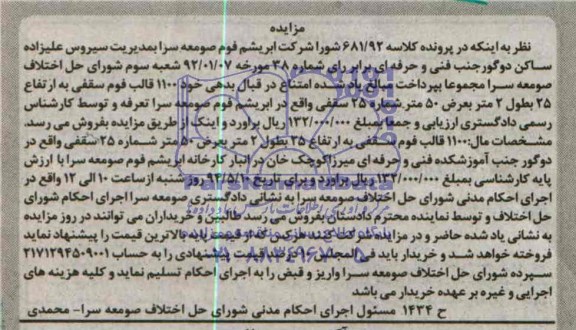 مزایده
نظر به اینکه در پرونده کلاسه ۶۸۱/۹۲ شورا شرکت ابریشم فوم صومعه سرا بمدیریت سیروس علیزاده
ساکن دوگور جنب فنی و حرفه ای برابر رای شماره ۳۸ مورخه ۹۲/۰۱/۰۷ شعبه سوم شورای حل اختلاف
صومعه سرا مجموعا بپرداخت مبالغ یاد شده امتناع در قبال بدهی خود ۱۱۰۰ قالب فوم سقفی به ارتفاع
۲۵ بطول ۲ متر بعرض ۵۰ متر شماره ۲۵ سقفی واقع در ابریشم فوم صومعه سرا تعرفه و توسط کارشناس
رسمی دادگستری ارزیابی و جمعا بمبلغ ۱۳۲/۰۰۰/۰۰۰ ریال براورد و اینک از طریق مزایده بفروش می رسد.
مشخصات مال: ۱۱۰۰ قالب فوم سقفی به ارتفاع ۲۵ بطول ۲ متر بعرض ۵۰ متر شماره ۲۵ سقفی واقع در
دوگور جنب آموزشکده فنی و حرفه ای میرزا کوچک خان در انبار کارخانه ابریشم فوم صومعه سرا با ارزش
پایه کارشناسی بمبلغ ۱۳۲/۰۰۰/۰۰۰ ریال براورد و برای تاریخ ۹۴/۵/۱۰ روز شنبه از ساعت ۱۰ الی ۱۲ واقع در
اجرای احکام مدنی شورای حل اختلاف صومعه سرا به نشانی دادگستری صومعه سرا اجرای احکام شورای
حل اختلاف و توسط نماینده محترم دادستان بفروش می رسد طالبین و خریداران می توانند در روز مزایده
به نشانی یاد شده حاضر و در مزایده شرکت کنند هرکس که از قیمت پایه بالاترین قیمت را پیشنهاد نماید
فروخته خواهد شد و خریدار باید فی المجلس ۱۰ درصد قیمت پیشنهادی را به حساب ۲۱۷۱۲۹۴۵۰۹۰۰۱
سپرده شورای حل اختلاف صومعه سرا واریز و قبض را به اجرای احکام تسلیم نماید و کلیه هزینه های
اجرایی و غیره بر عهده خریدار می باشد
ح ۱۴۳۴ مسئول اجرای احکام مدنی شورای حل اختلاف صومعه سرا- محمدی